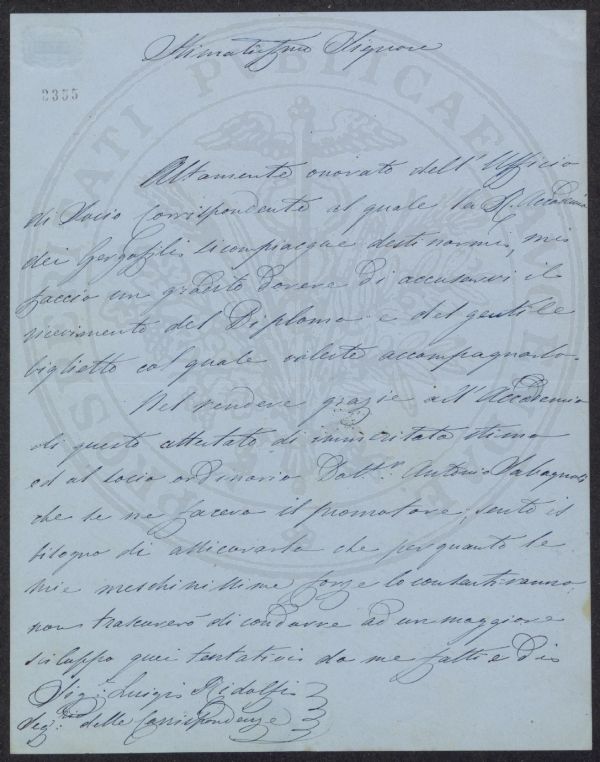 Stimatissimo Signore
2355
Altamente onorato dell'Ufficio
di Socio Corrispondente al quale la R. Accademia
dei Georgofili si compiacque destinarmi, mi
faccio un gradito dovere di accusarvi il
ricevimento del Diploma e del gentile
biglietto col quale voleste accompagnarlo.
Nel rendere grazie all'Accademia
di questo attestato di immeritata stima
ed al socio ordinario Dott.r Antonio
che se ne faceva il promotore, sento il
bisogno di assicurarla che per quanto le
mie meschinissime forze lo consentiranno,
non trascurerò di condurre ad un maggiore
sviluppo quei tentativi da me fatti e di
Sig.r Luigi Ridolfi
Seg.rio delle Corrispondenze
PUBLICAE